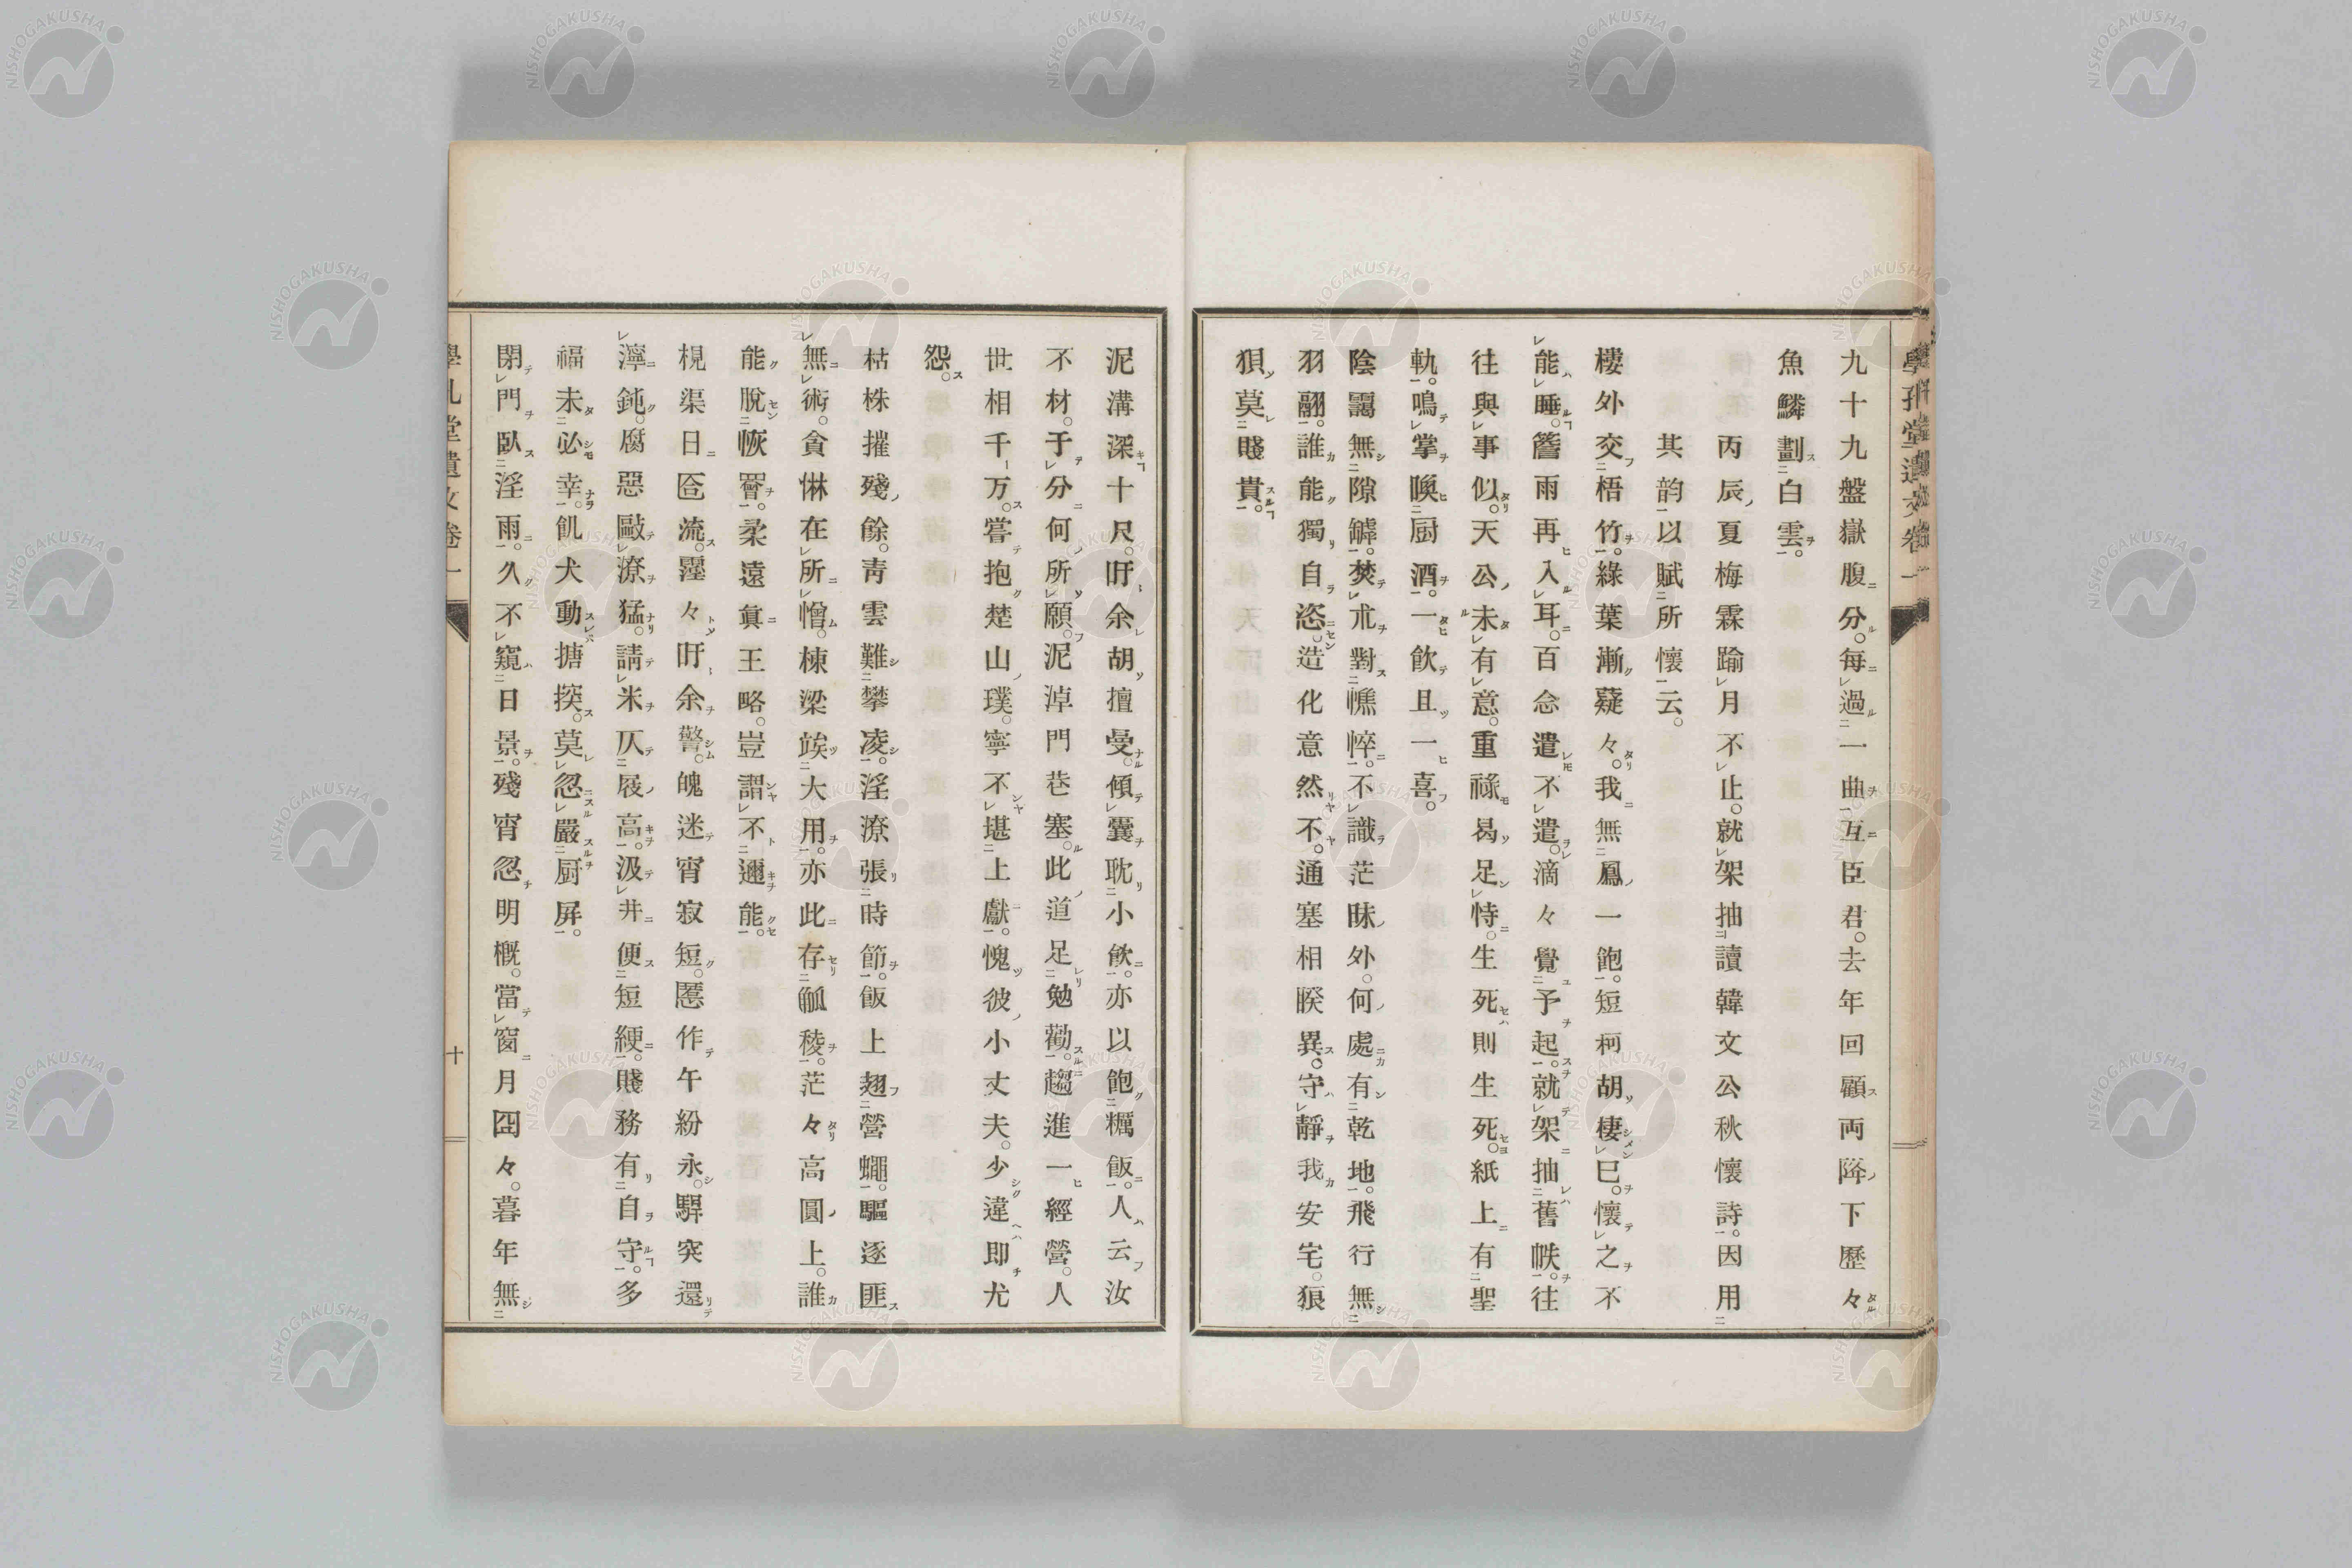 學孔堂遺文卷一
九十九盤嶽腹分。每過一曲互臣君。去年回顧両降下歷々
魚鱗劃白雲。
丙辰夏梅霖踰月不止。就架抽讀韓文公秋懷詩。因用
其韵以賦所懷云。
樓外交梧竹。綠葉漸薿々。我無鳳一飽。短柯胡棲已。懷之不
能睡。簷雨再入耳。百念遣不遣。滴々覺予起。就架抽舊帙。往
往與事似。天公未有意。重祿曷足恃。生死則生死。紙上有聖
軌。鳴掌喚厨酒。一飲且一喜。
陰靄無隙罅。焚朮對憔悴。不識茫昧外。何處有乾地。飛行無
羽翮。誰能獨自恣。造化意然不。通塞相睽異。守靜我安宅。狼
狽莫賤貴。
泥溝深十尺。盱余胡擅曼。傾囊耽小飮。亦以飽糲飯。人云汝
不材。于分何所願。泥淖門巷塞。此道足勉勸。趨進一經營。人
世相千万。嘗抱楚山璞。寧不堪上獻。愧彼小丈夫。少違即尤
怨。
枯株摧殘餘。靑雲難攀凌。淫潦張時節。飯上翅營蠅。驅逐匪
無術。貪惏在所憎。棟梁竢大用。亦此存觚稜。茫々高圓上。誰
能脫恢罾。柔遠眞王略。豈謂不邇能。
梘渠日匼流。霪々盱余警。魄迷宵寂短。慝作午紛永。騂突還
濘鈍。腐惡毆潦猛。請米仄屐高。汲井便短綆。賤務有自守。多
福未必幸。飢犬動搪揬。莫忍嚴厨屏。
閉門臥淫雨。久不窺日景。殘宵忽明概。當窗月囧々。暮年無
學孔堂遺文卷一
十